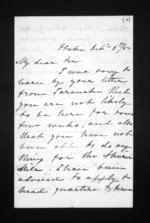 Otaki Feb 6th
My dear Sir
I was sorry to
learn by your letter
from Taranaki that
you are not likely
to be here for some
two weeks, and also
that you have not
been able to do any
thing for the
I have been
advised to apply to
head quarters